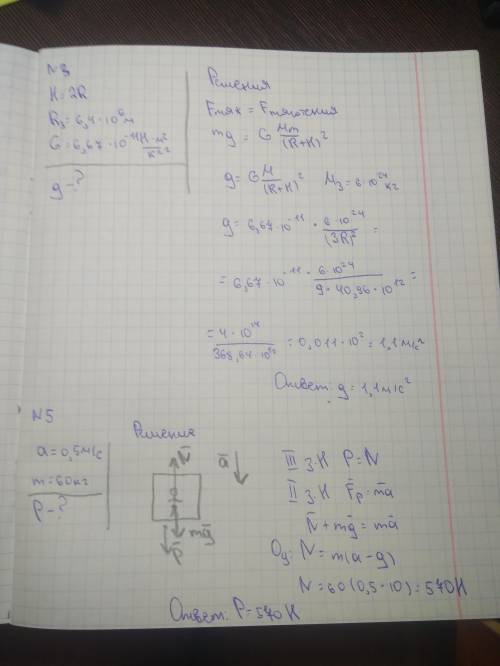 N3
H = 2R
R₃ = 6,4·10⁶м
G = 6,67·10⁻¹¹ Н·м²/кг²
g - ?
Решения
Fтяж = Fтяготения
mg = G Mm/(R+H)²
g = G M/(R+H)² M₃ = 6·10²⁴ кг
g = 6,67·10⁻¹¹ · 6·10²⁴/(3R)² =
= 6,67·10⁻¹¹ · 6·10²⁴/9·40,96·10¹² =
= 4·10¹⁴/368,64·10¹² = 0,011·10² = 1,1м/с²
Ответ: g = 1,1м/с²
N5
a = 0,5м/с
m = 60кг
P - ?
Решения
N̄
ā
mḡ
P̄
III з.Н P = N
II з.Н F̄р = mā
N̄ + mḡ = mā
Oy: N = m(a - g)
N = 60(0,5 - 10) = 570Н
Ответ: P = 570Н